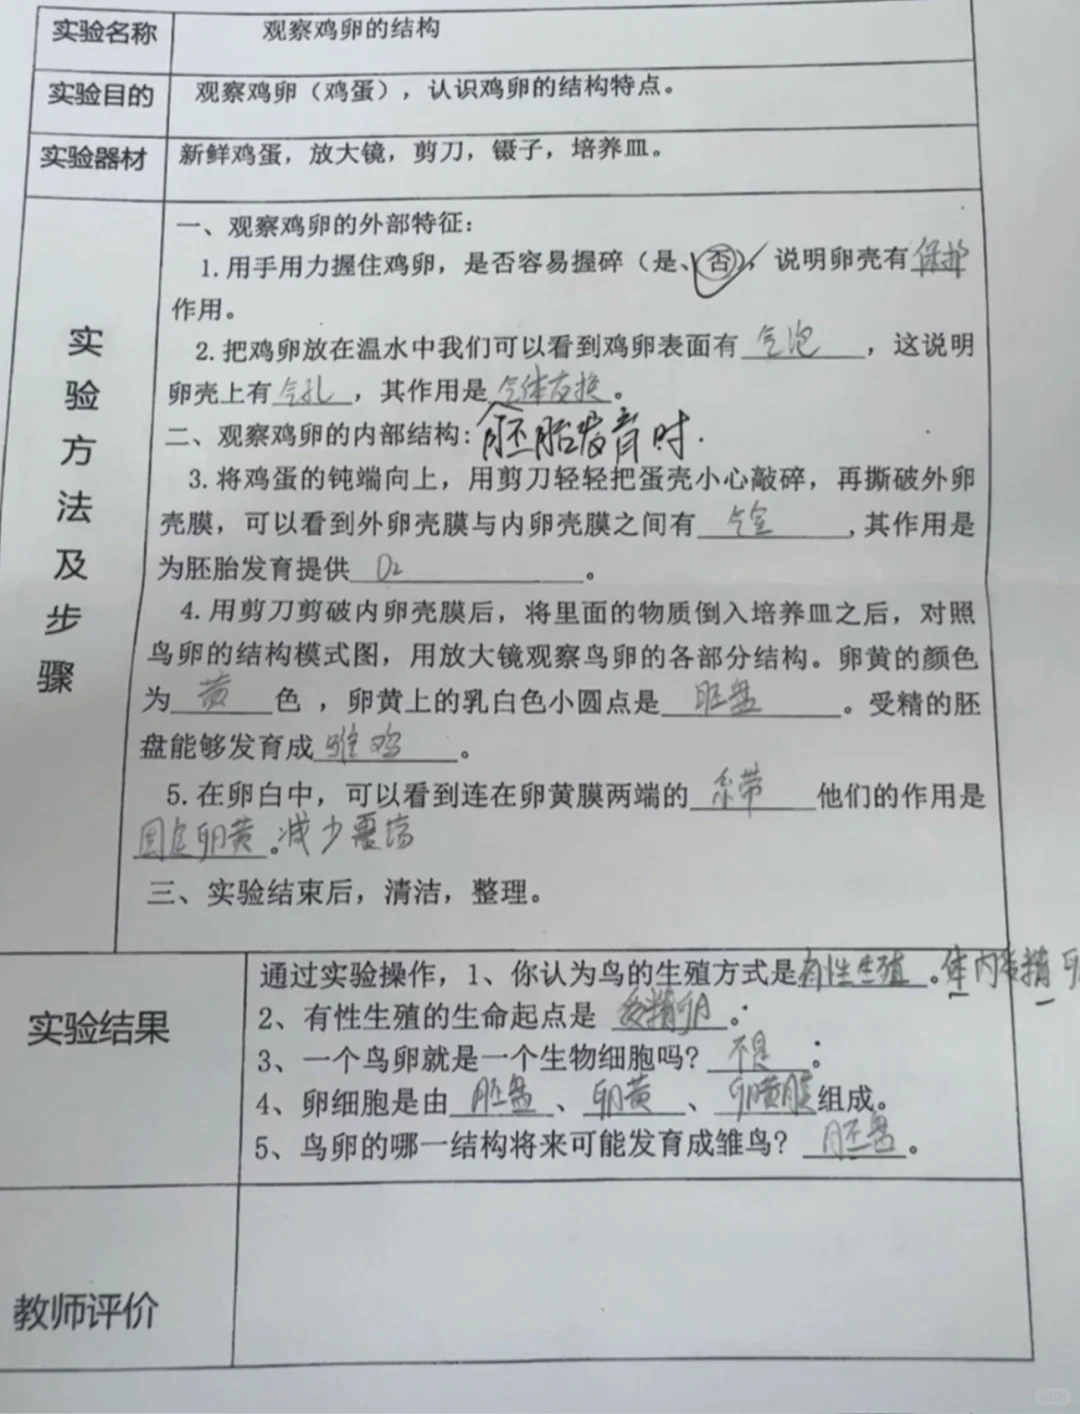 实验名称 观察鸡卵的结构
实验目的 观察鸡卵（鸡蛋），认识鸡卵的结构特点。
实验器材 新鲜鸡蛋，放大镜，剪刀，镊子，培养皿。
实验方法及步骤
一、观察鸡卵的外部特征：
1.用手用力握住鸡卵，是否容易握碎（是、否），说明卵壳有保护
作用。
2.把鸡卵放在温水中我们可以看到鸡卵表面有气泡，这说明
卵壳上有气孔，其作用是气体交换。
二、观察鸡卵的内部结构：胚胎发育时.
3.将鸡蛋的钝端向上，用剪刀轻轻把蛋壳小心敲碎，再撕破外卵
壳膜，可以看到外卵壳膜与内卵壳膜之间有气室,其作用是
为胚胎发育提供O₂。
4.用剪刀剪破内卵壳膜后，将里面的物质倒入培养皿之后，对照
鸟卵的结构模式图，用放大镜观察鸟卵的各部分结构。卵黄的颜色
为黄色，卵黄上的乳白色小圆点是胚盘。受精的胚
盘能够发育成雏鸡。
5.在卵白中，可以看到连在卵黄膜两端的系带他们的作用是
固定卵黄。减少震荡
三、实验结束后，清洁，整理。
实验结果
通过实验操作，1、你认为鸟的生殖方式是有性生殖。体内受精
2、有性生殖的生命起点是受精卵。
3、一个鸟卵就是一个生物细胞吗？不是。
4、卵细胞是由胚盘、卵黄、卵黄膜组成。
5、鸟卵的哪一结构将来可能发育成雏鸟？胚盘。
教师评价